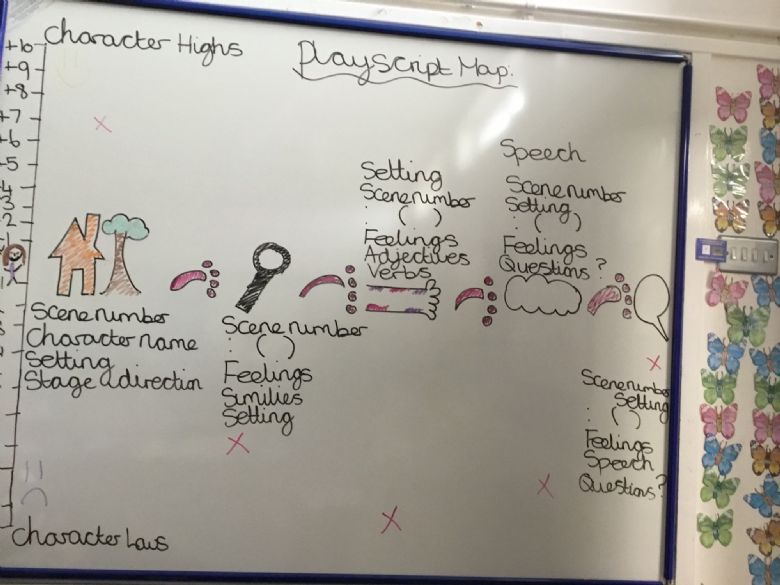 Character Highs
Playscript Map.
+10
+9
+8
+7
+6
+5
4
3
2
1
Scene number
Character name
Setting
Stage direction
Scene number
: ( )
Feelings
Similies
Setting
Setting
Scene number
: ( )
Feelings
Adjectives
Verbs
Speech
Scene number
Setting
: ( )
Feelings
Questions?
Scene number
Setting
: ( )
Feelings
Speech
Questions?
Character Lows